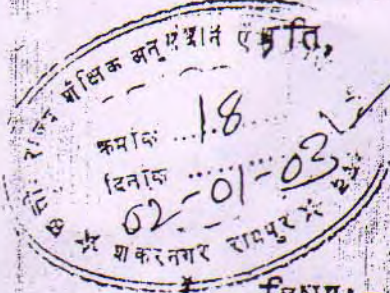 शैक्षिक अनुसंधान एवं
प्रति,
क्रमांक ....18....
दिनांक .........
02-01-03
शंकरनगर रायपुर
विषय: